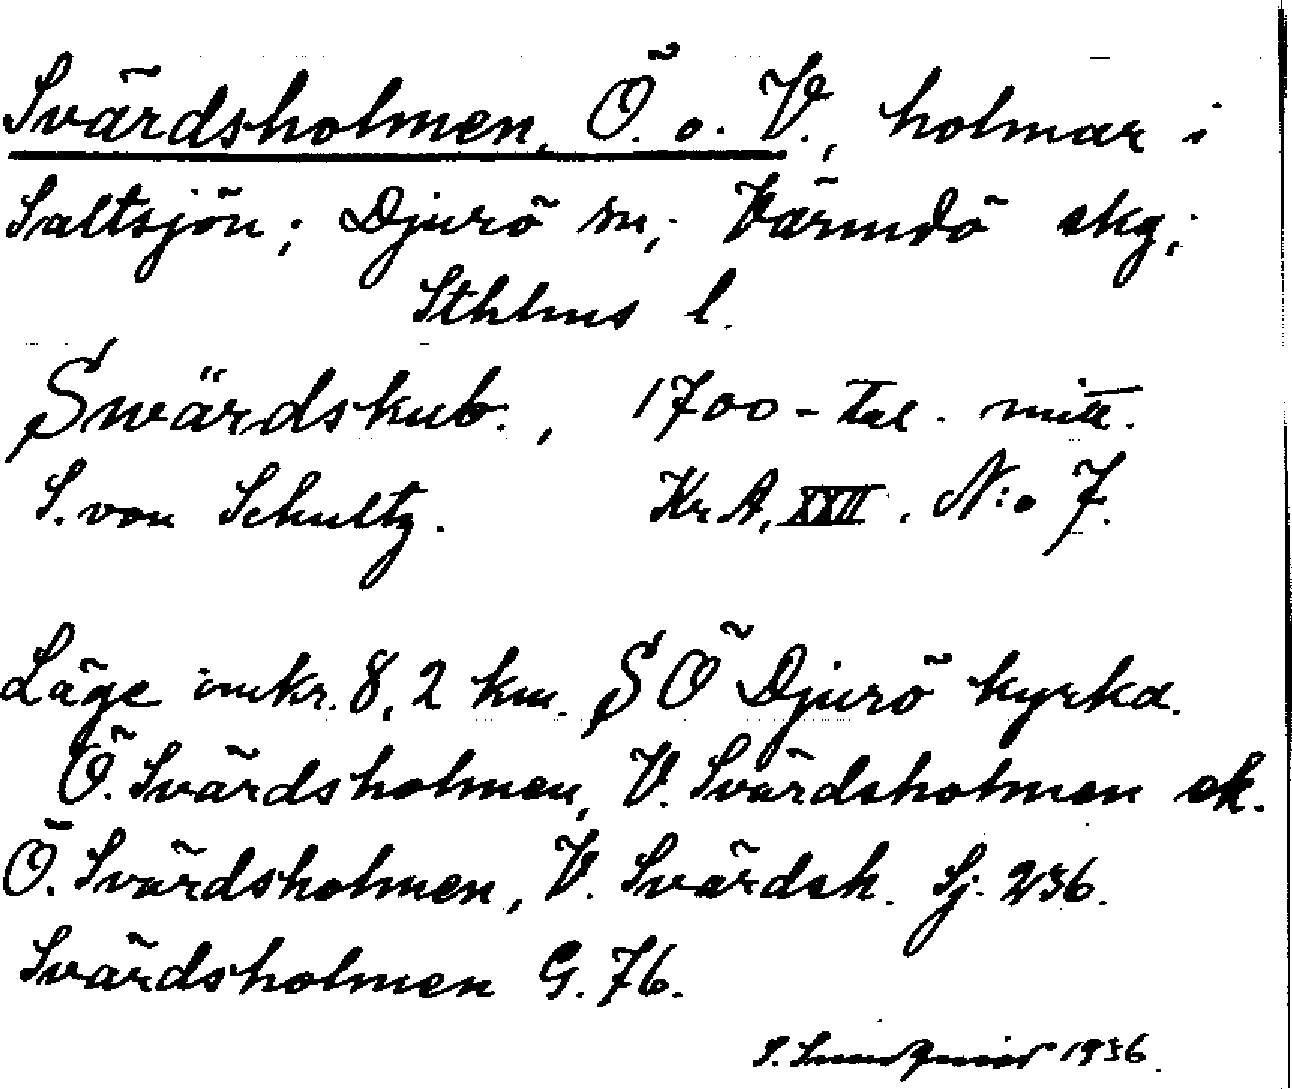 Svärdsholmen, Ö. o. V., holmar i
Saltsjön; Djurö sn; Värmdö skg;
Sthlms l.
Swärdskub., 1700-tal. mitt.
S. von Schultz. Kr A, XXII. N:o 7.
Läge omkr. 8,2 km. SÖ Djurö kyrka.
Ö. Svärdsholmen, V. Svärdsholmen ek.
Ö. Svärdsholmen, V. Svärdsh. Sj. 236.
Svärdsholmen G. 76.
S. 1936.